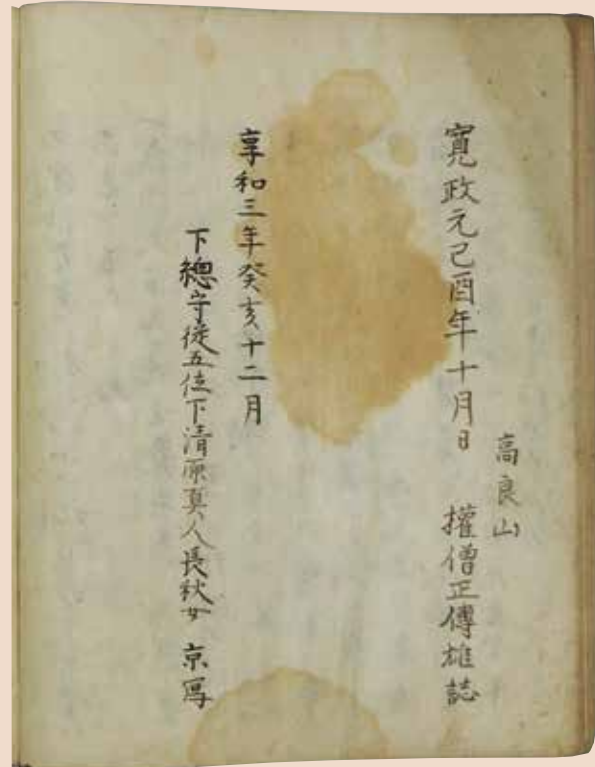 寛政元己酉年十月日
高良山
權僧正傳雄誌
享和三年癸亥十二月
下總守従五位下清原真人長秋女 京写